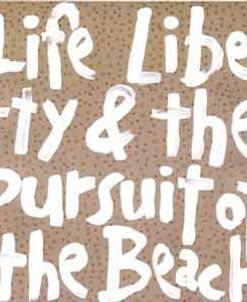 Life Libe
rty & the
Pursuit of
the Beach